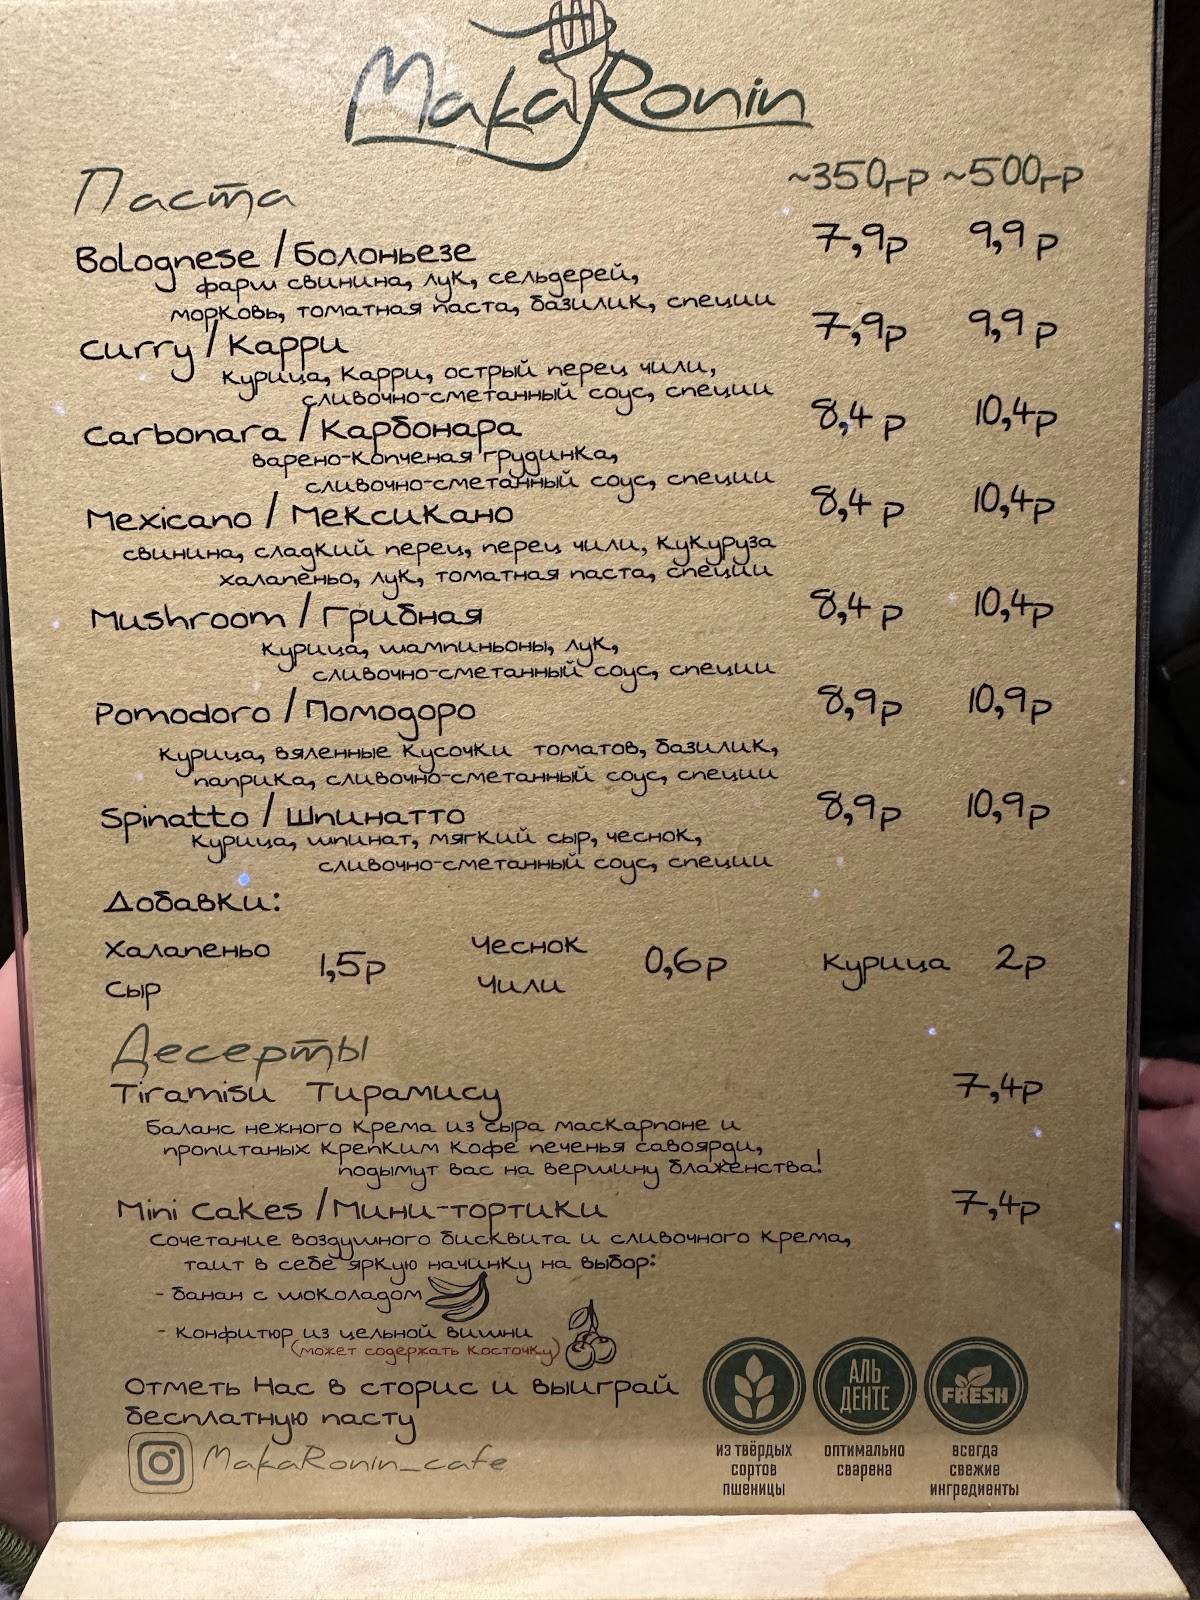 MakaRonin
Паста ~350гр ~500гр
Bolognese / Болоньезе 7,9р 9,9р
фарш свинина, лук, сельдерей,
морковь, томатная паста, базилик, специи
Curry / Карри 7,9р 9,9р
курица, карри, острый перец чили,
сливочно-сметанный соус, специи
Carbonara / Карбонара 8,4р 10,4р
варено-копченая грудинка,
сливочно-сметанный соус, специи
Mexicano / Мексикано 8,4р 10,4р
свинина, сладкий перец, перец чили, кукуруза
халапеньо, лук, томатная паста, специи
Mushroom / Грибная 8,4р 10,4р
курица, шампиньоны, лук,
сливочно-сметанный соус, специи
Pomodoro / Помодоро 8,9р 10,9р
курица, вяленные кусочки томатов, базилик,
паприка, сливочно-сметанный соус, специи
Spinatto / Шпинатто 8,9р 10,9р
курица, шпинат, мягкий сыр, чеснок,
сливочно-сметанный соус, специи
Добавки:
Халапеньо
Сыр
1,5р
Чеснок
Чили
0,6р
Курица 2р
Десерты
Tiramisu Тирамису 7,4р
Баланс нежного крема из сыра маскарпоне и
пропитаных крепким кофе печенья савоярди,
подымут вас на вершину блаженства!
Mini Cakes / Мини-тортики 7,4р
Сочетание воздушного бисквита и сливочного крема,
таит в себе яркую начинку на выбор:
- банан с шоколадом
- конфитюр из цельной вишни
(может содержать косточку)
Отметь Нас в сторис и выиграй
бесплатную пасту
MakaRonin_cafe
из твёрдых
сортов
пшеницы
АЛЬ
ДЕНТЕ
оптимально
сварена
FRESH
всегда
свежие
ингредиенты